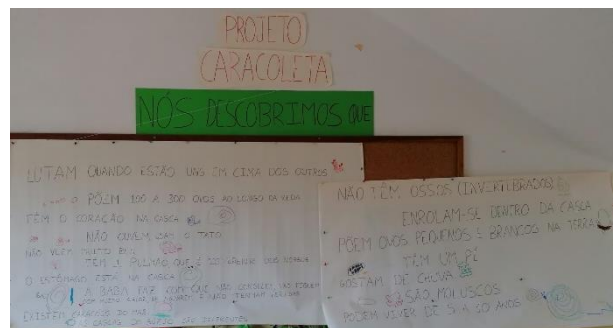 PROJETO
CARACOLETA
NÓS DESCOBRIMOS QUE
LUTAM QUANDO ESTÃO UNS EM CIMA DOS OUTROS
PÕEM 100 A 300 OVOS AO LONGO DA VIDA
TÊM O CORAÇÃO NA CASCA
NÃO OUVEM, O TATO
NÃO VEEM MUITO BEM
TÊM 1 PULMÃO QUE É
O ESTÔMAGO ESTÁ NA CASCA
A BABA FAZ COM QUE
EXISTEM CARACÓIS DO MAR
SÃO DIFERENTES
NÃO TÊM OSSOS (INVERTEBRADOS)
ENROLAM-SE DENTRO DA CASCA
PÕEM OVOS PEQUENOS E BRANCOS NA TERRA
TÊM UM PÉ
GOSTAM DE CHUVA
SÃO MOLUSCOS
PODEM VIVER DE 5 A 10 ANOS